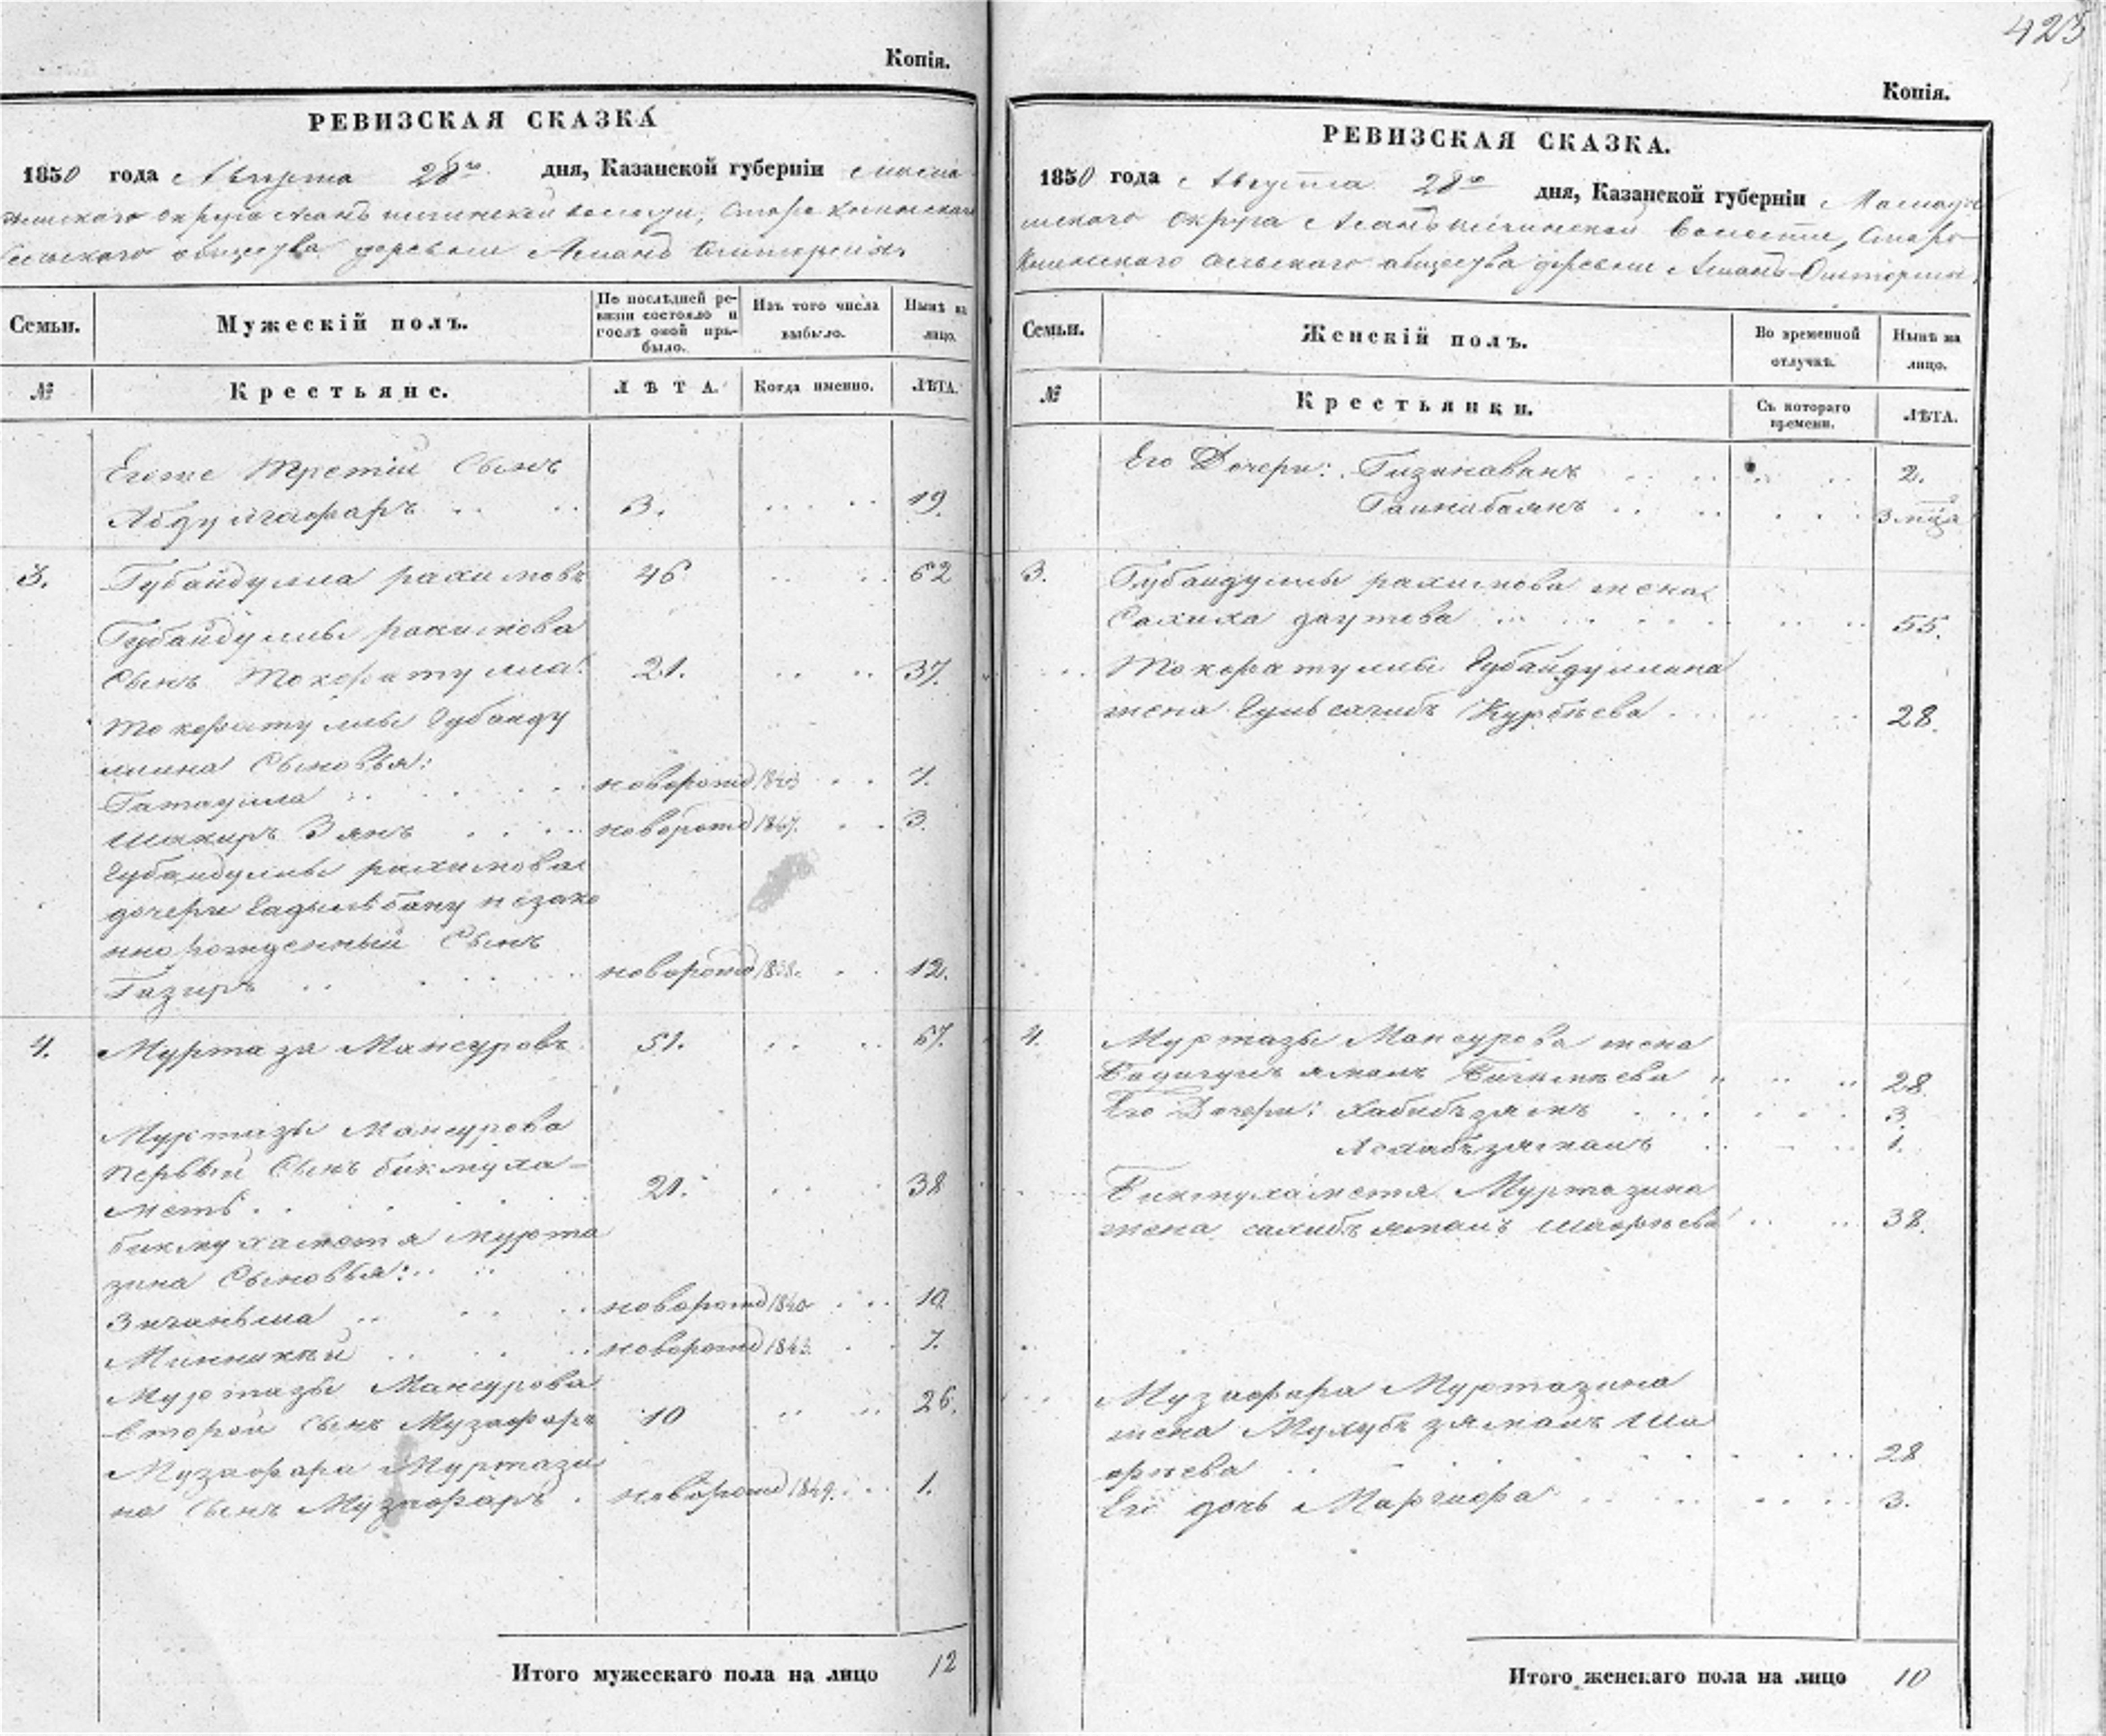 Копія.
РЕВИЗСКАЯ СКАЗКА
1850 года Августа 28го дня, Казанской губерніи Мама
дышского округа волости, Старо
сельского общества деревни Асанъ
Семьи.
Мужескій полъ.
По послѣдней ре-
визіи состояло и
послѣ оной при-
было.
Изъ того числа
выбыло.
Нынѣ на
лицо.
№
Крестьяне.
ЛѢТА.
Когда именно.
ЛѢТА.
Егоже третій сынъ
Абдулгафаръ 3. 19.
3. Губайдулла рахимовъ 46 62
Губайдуллы рахимова
сынъ Тохфатулла 21. 37.
Тохфатуллы Губайду
ллина Сыновья:
Гатаулла новорожд 1843 7.
Шакиръ Зянъ новорожд 1847. 3.
Губайдуллы рахимова
дочери Бадыльбану незако
ннорожденный Сынъ
Газизъ новорожд 1838. 12.
4. Муртаза Мансуровъ 51. 67.
Муртазы Мансурова
первый Сынъ бикмуха-
меть 21. 38
бикмухаметя мурта
зина Сыновья:
Зиганьша новорожд 1840 10
Миннихай новорожд 1843. 7.
Муртазы Мансурова
второй сынъ Музафаръ 10 26.
Музафара Муртази
на сынъ Музафаръ новорожд 1849. 1.
Итого мужескаго пола на лицо 12
423
Копія.
РЕВИЗСКАЯ СКАЗКА.
1850 года Августа 28го дня, Казанской губерніи Мамады
шскаго округа волости, Старо
сельскаго общества деревни Асанъ
Семьи.
Женскій полъ.
Во временной
отлучкѣ.
Нынѣ на
лицо.
№
Крестьянки.
Съ котораго
времени.
ЛѢТА.
Его Дочери: Гизинаванъ 2.
Гайнибаянъ 3 мца
3. Губайдуллы рахимова жена
Салиха даутова 55.
Тохфатуллы Губайдуллина
жена Гульсагибъ Курбѣева 28.
4. Муртазы Мансурова жена
Бадигулъ ямалъ Бикмѣева 28.
Его Дочери: Хабибъзямъ 3.
Асхабъзямалъ 1.
Бикмухаметя Муртазина
жена салибъ ямалъ Шафѣева 38.
Музафара Муртазина
жена Мухубъ зямалъ Ша
фѣева 28
Его дочь Маргифа 3.
Итого женскаго пола на лицо 10